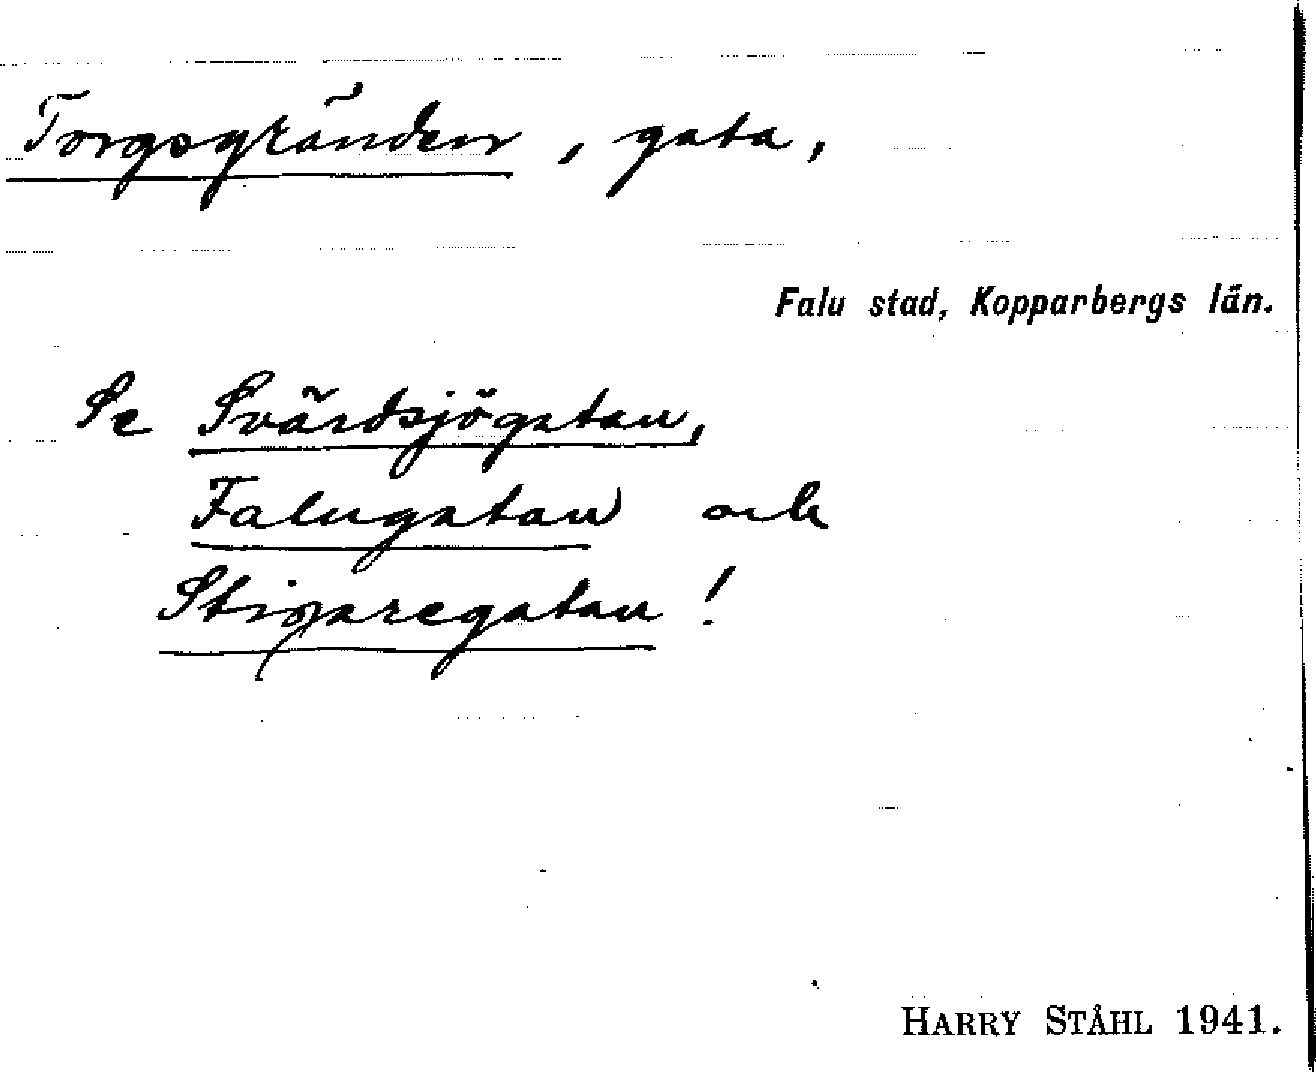 Torgsgränden, gata,
Falu stad, Kopparbergs län.
Se Svärdsjögatan,
Falugatan och
Stigaregatan!
HARRY STÅHL 1941.